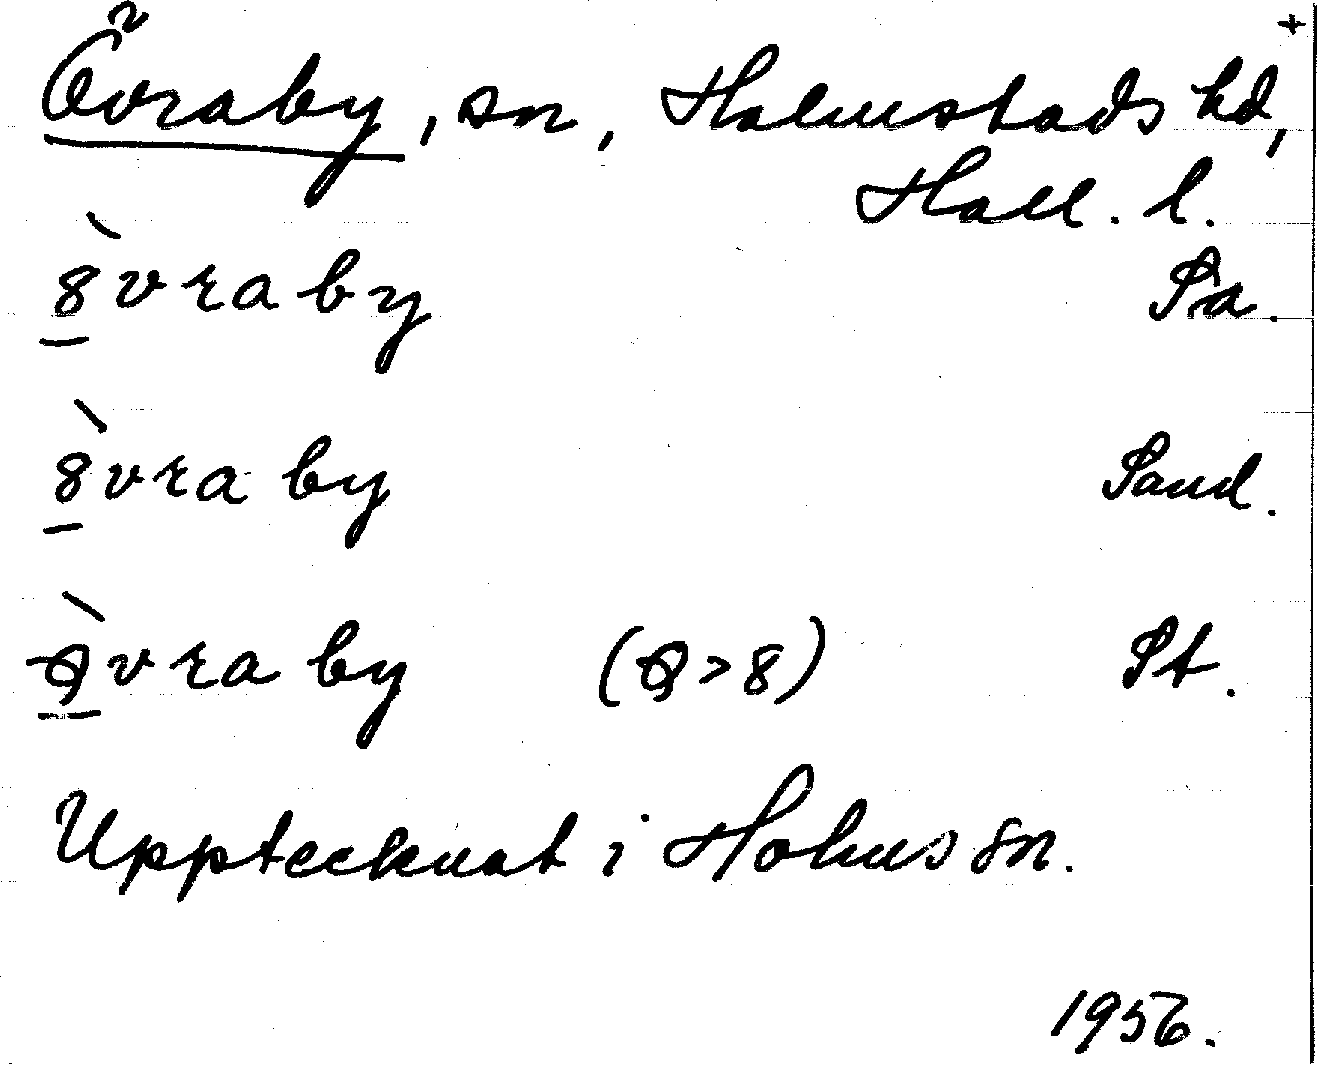 +
Övraby, sn, Halmstads hd,
Hall. l.
8̀vraby Pa.
8̀vraby Sand.
Q̀vraby (Q>8) St.
Upptecknat i Holms sn.
1956.